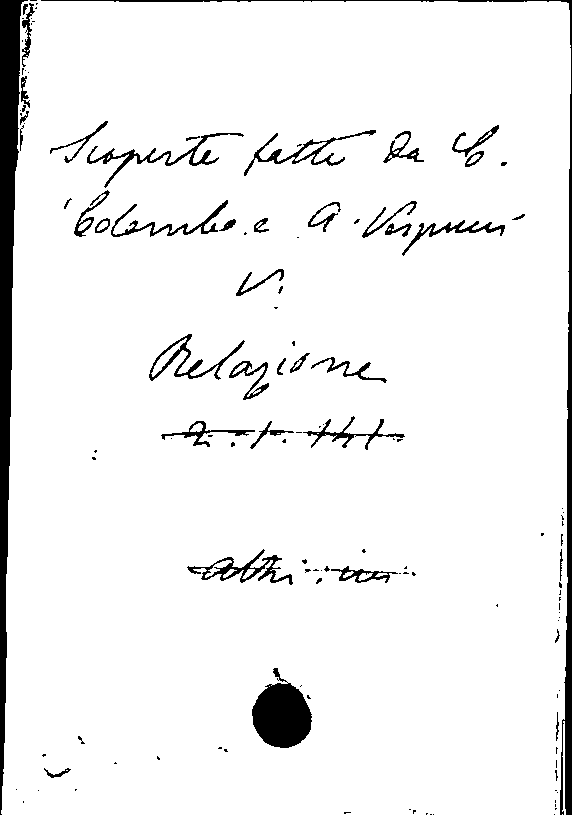 Scoperte fatte da C.
Colombo e A. Vespucci
V.
Relazione
2. 1. 141
altri